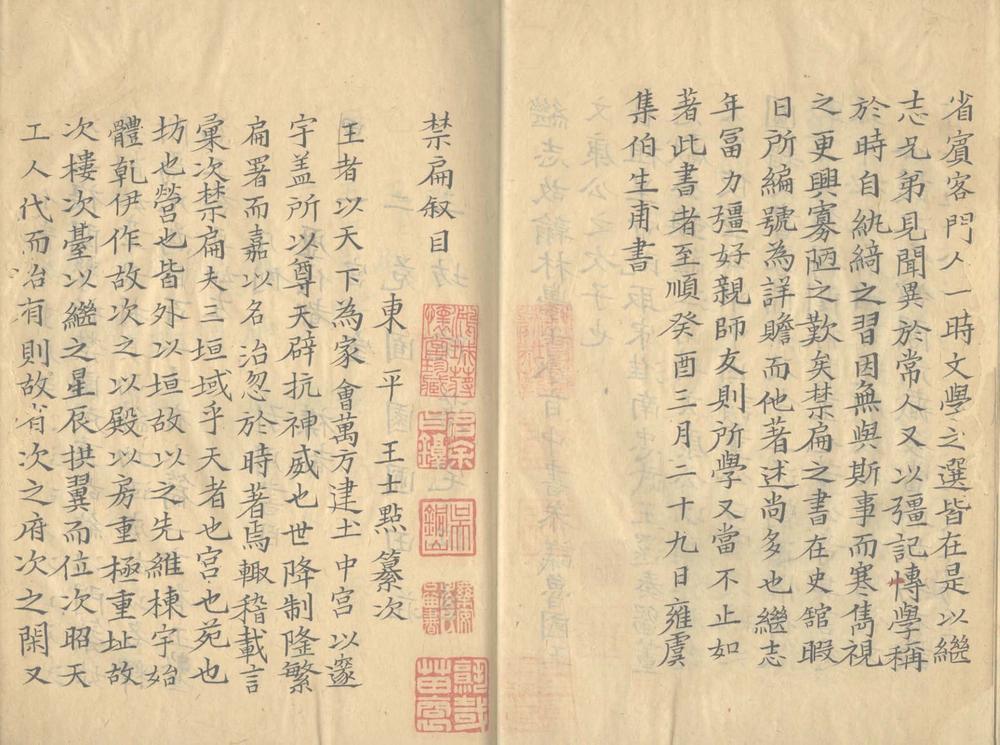 省賓客門人一時文學之選皆在是以繼
志兄弟見聞異於常人又以彊記博學稱
於時自紈綺之習因無與斯事而寒雋視
之更興寡陋之歎矣禁扁之書在史舘暇
日所編號為詳贍而他著述尚多也繼志
年冨力彊好親師友則所學又當不止如
著此書者至順癸酉三月二十九日雍虞
集伯生甫書
禁扁叙目
東平 王士點纂次
王者以天下為家會萬方建土中宮以邃
宇盖所以尊天辟抗神威也世降制隆繁
扁署而嘉以名治忽於時著焉輙稽載言
彙次禁扁夫三垣域乎天者也宮也苑也
坊也營也皆外以垣故以之先維棟宇始
體乹伊作故次之以殿以房重極重址故
次樓次臺以繼之星辰拱翼而位次昭天
工人代而治有則故省次之府次之閑又